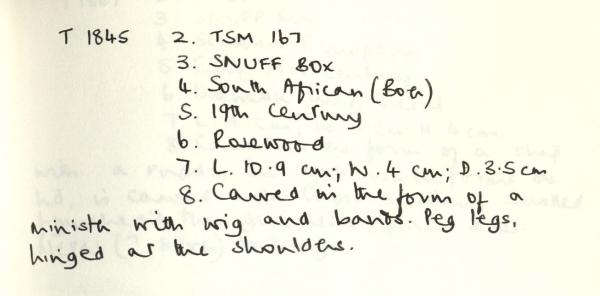 T 1845 2. TSM 167
3. SNUFF BOX
4. South African (Boer)
5. 19th Century
6. Rosewood
7. L. 10.9 cm; W. 4 cm; D. 3.5 cm
8. Carved in the form of a
minister with wig and bands. Peg legs,
hinged at the shoulders.